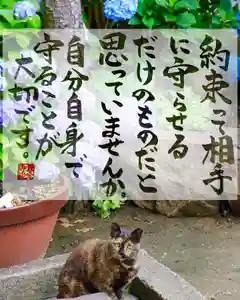 約束って相手
に守らせる
だけのものだと
思っていませんか、
自分自身で
守ることが
大切です。